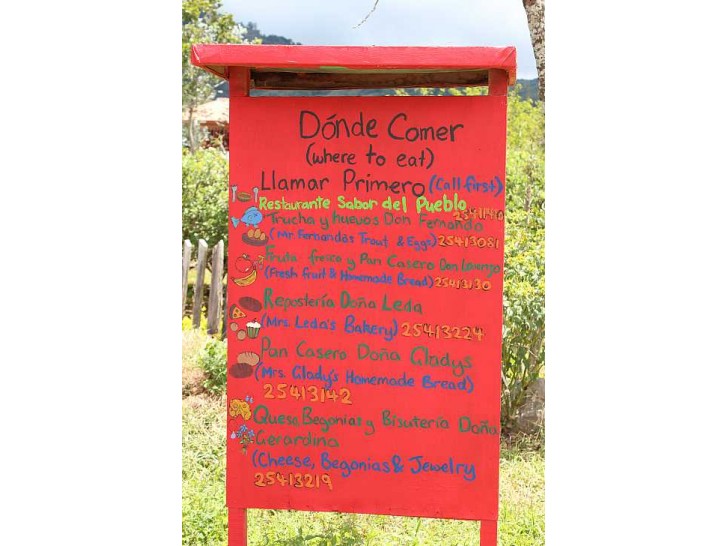 Dónde Comer
(where to eat)
Llamar Primero (Call first)
Restaurante Sabor del Pueblo
Trucha y huevos Don Fernando
(Mr Fernandas Trout & Eggs) 25413081
Fruta fresco y Pan Casero Don Lorenzo
(Fresh fruit & Homemade Bread) 25413130
Repostería Doña Leda
(Mrs. Leda's Bakery) 25413224
Pan Casero Doña Gladys
(Mrs. Glady's Homemade Bread)
25413142
Queso, Begonias y Bisutería Doña
Gerardina
(Cheese, Begonias & Jewelry
25413219